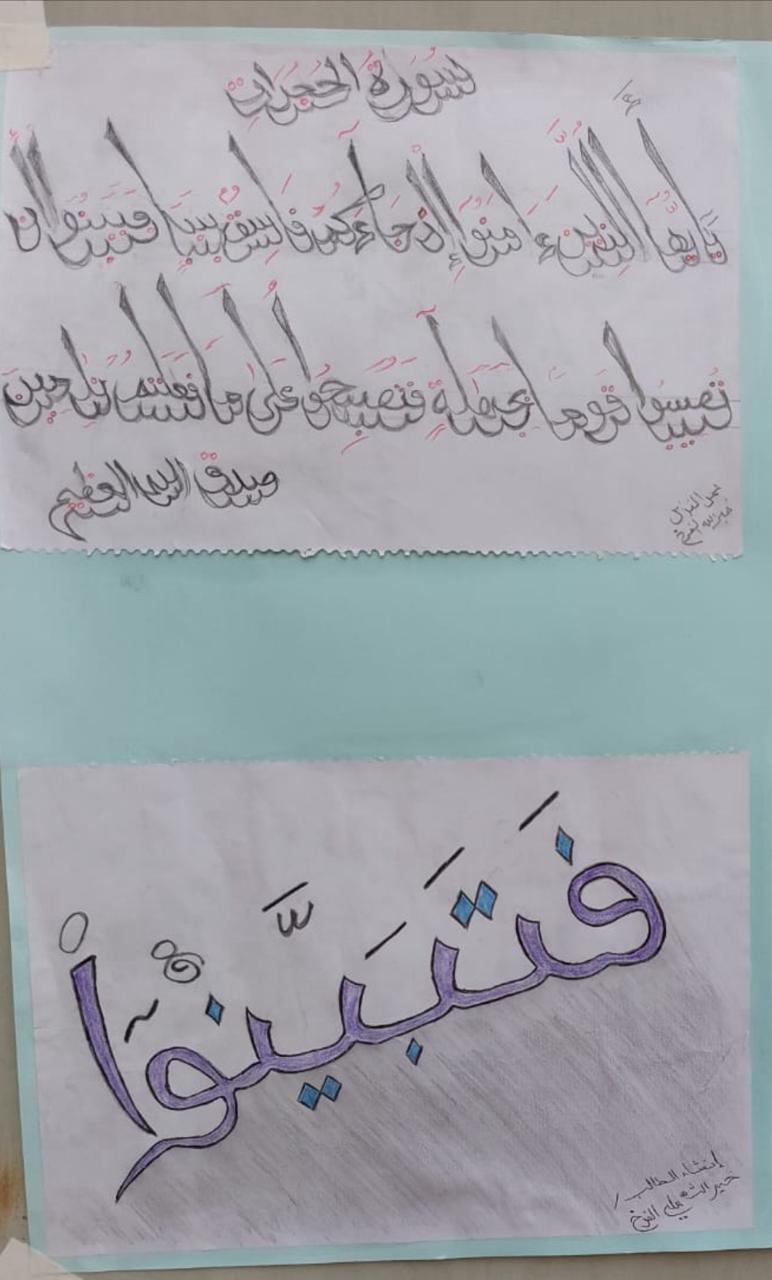 سُورَةُ الحُجُرَاتِ
يَٰٓأَيُّهَا ٱلَّذِينَ ءَامَنُوٓا۟ إِن جَآءَكُمْ فَاسِقٌۢ بِنَبَإٍ فَتَبَيَّنُوٓا۟ أَن
تُصِيبُوا۟ قَوْمًۢا بِجَهَٰلَةٍ فَتُصْبِحُوا۟ عَلَىٰ مَا فَعَلْتُمْ نَٰدِمِينَ
صدق الله العظيم
فَتَبَيَّنُوٓاْ
إنشاء الطالب /
خير الله علي